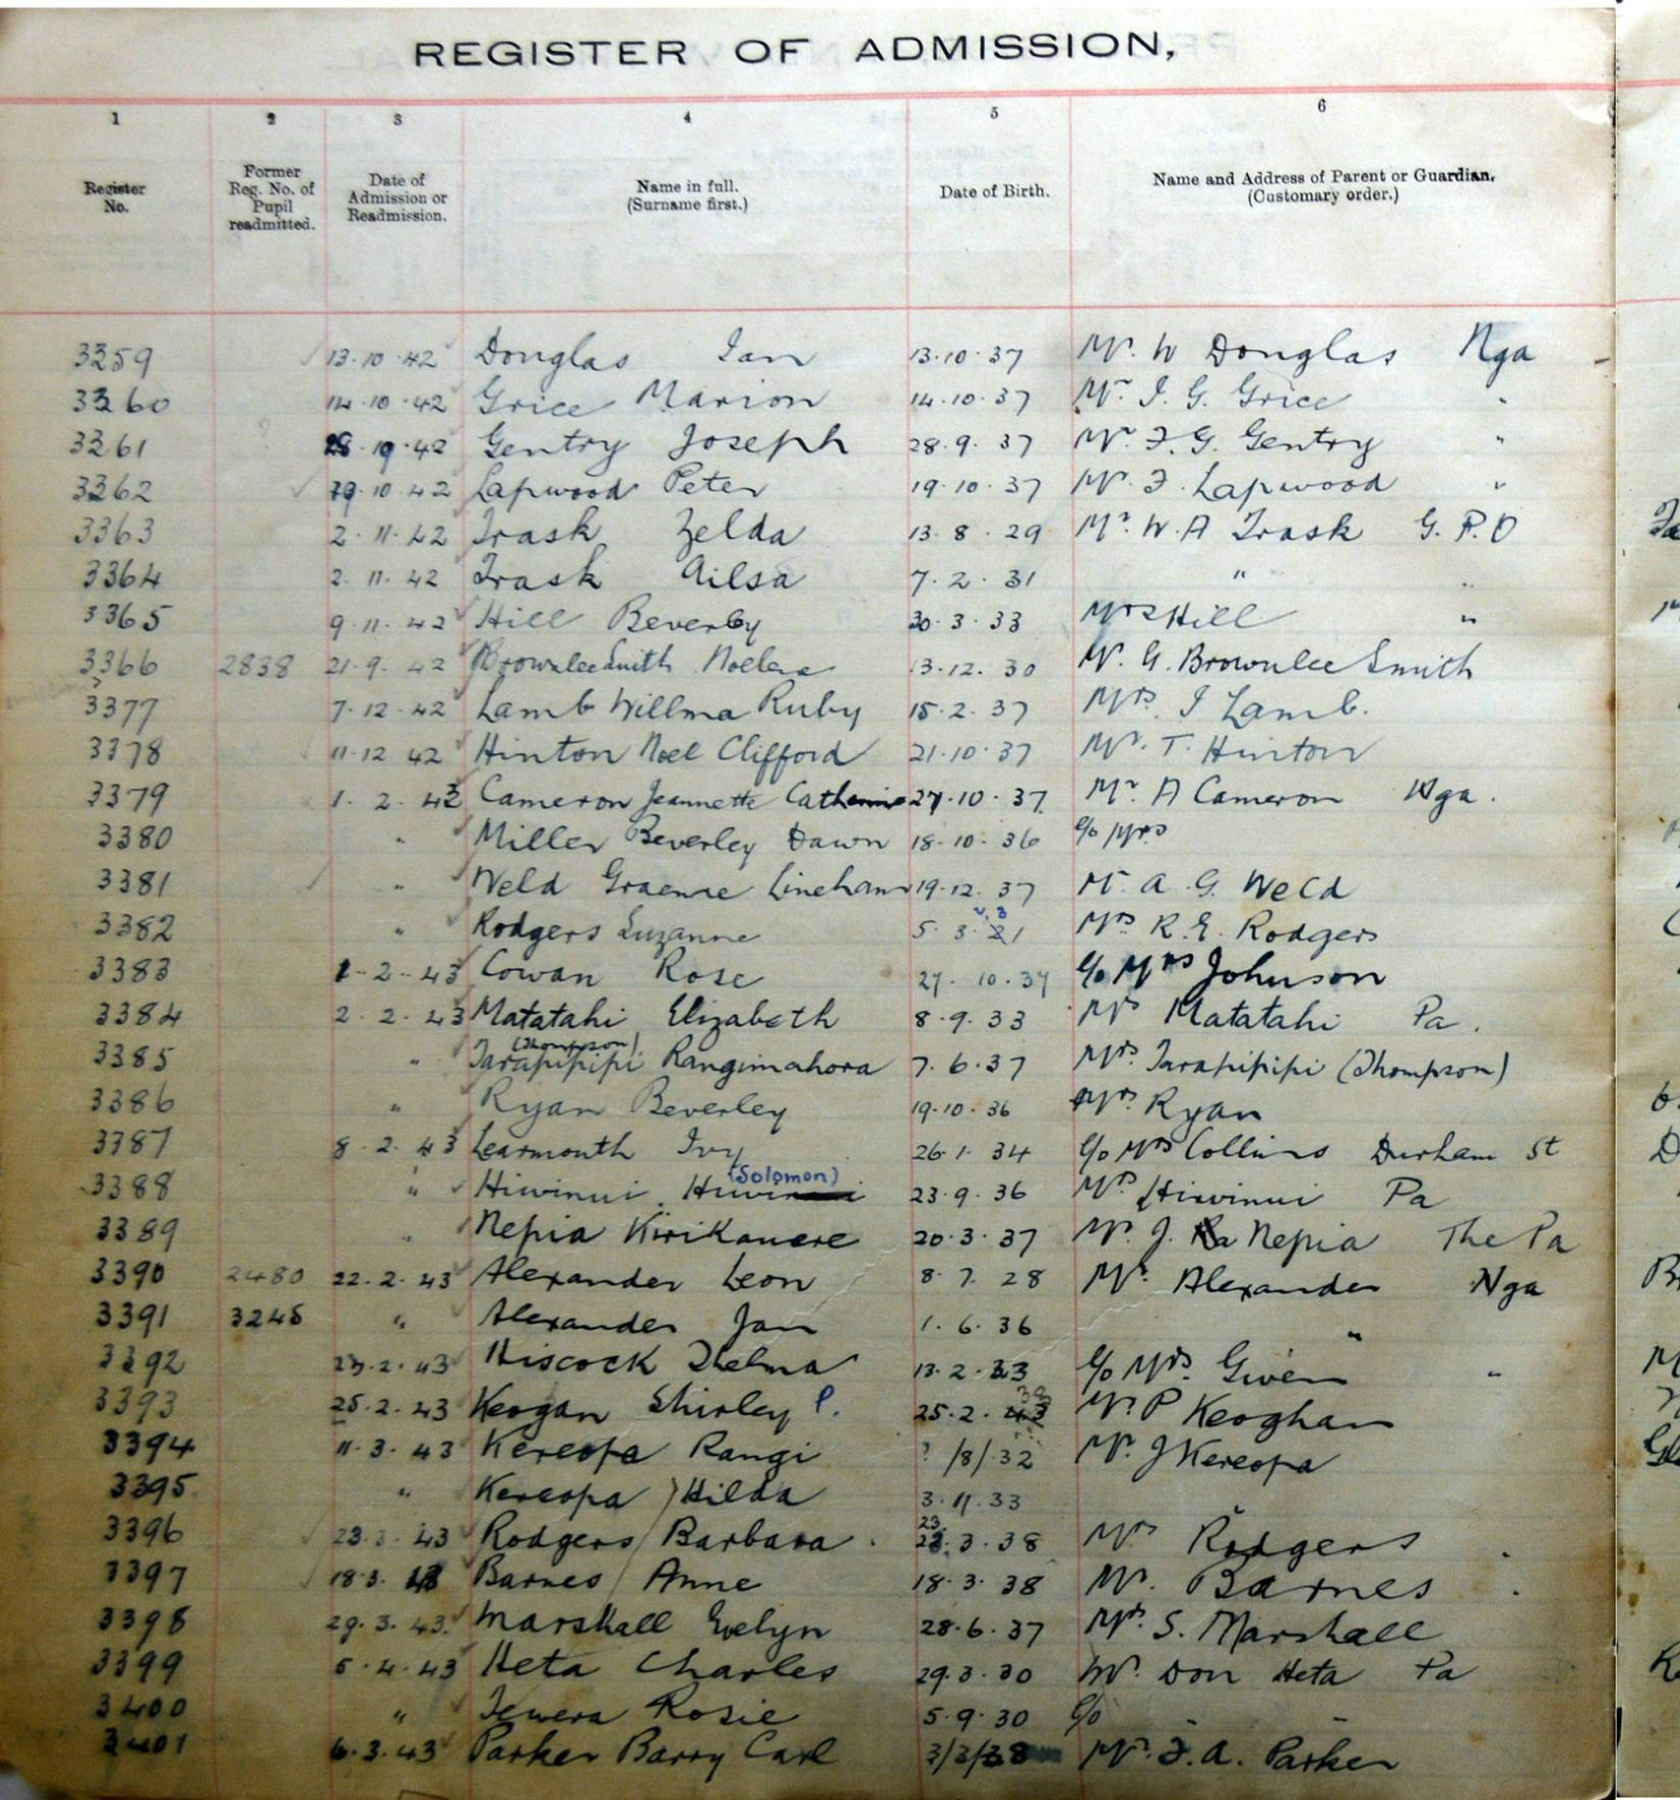 REGISTER OF ADMISSION,
1 2 3 4 5 6
Register No. Former Reg. No. of Pupil readmitted. Date of Admission or Readmission. Name in full. (Surname first.) Date of Birth. Name and Address of Parent or Guardian. (Customary order.)
3259 13.10.42 Douglas Ian 13.10.37 Mr. W Douglas Nga
3260 14.10.42 Grice Marion 14.10.37 Mr. J. G. Grice "
3261 28.10.42 Gentry Joseph 28.9.37 Mr. F. G. Gentry "
3262 19.10.42 Lapwood Peter 19.10.37 Mr. F. Lapwood "
3363 2.11.42 Trask Zelda 13.8.29 Mr. W. A Trask G.P.O
3364 2.11.42 Trask Ailsa 7.2.31 " "
3365 9.11.42 Hill Beverley 30.3.33 Mrs Hill "
3366 2838 21.9.42 Brownlee Smith Noelene 13.12.30 Mr. G. Brownlee Smith
3377 7.12.42 Lamb Willma Ruby 15.2.37 Mrs. J Lamb.
3378 11.12 42 Hinton Noel Clifford 21.10.37 Mr. T. Hinton
3379 1.2.43 Cameron Jeannette Catherine 27.10.37 Mr A Cameron Nga.
3380 " Miller Beverley Dawn 18.10.36 c/o Mrs
3381 " Weld Graeme Lineham 19.12.37 Mr. A. G. Weld
3382 " Rodgers Suzanne 5.3. Mrs R. E. Rodgers
3383 1-2-43 Cowan Rose 27.10.37 c/o Mrs Johnson
3384 2.2.43 Matatahi Elizabeth 8.9.33 Mr Matatahi Pa.
3385 " Tarapipipi (Thompson) Rangimahora 7.6.37 Mrs. Tarapipipi (Thompson)
3386 " Ryan Beverley 19.10.36 Mr. Ryan
3387 8.2.43 Learmonth Ivy 26.1.34 c/o Mrs Collins Durham St
3388 " Hiwinui. Hiwinui (Solomon) 23.9.36 Mr. Hiwinui Pa
3389 " Nepia Kirikauere 20.3.37 Mr. J. Nepia The Pa
3390 2480 22.2.43 Alexander Leon 8.7.28 Mr. Alexander Nga
3391 3245 " Alexander Jan 1.6.36 "
3392 23.2.43 Hiscock Thelma 13.2.33 c/o Mrs. Given "
3393 25.2.43 Keogan Shirley P. 25.2.38 Mr. P Keoghan
3394 11.3.43 Kereopa Rangi ?/8/32 Mr. J Kereopa
3395 " Kereopa Hilda 3.11.33
3396 23.3.43 Rodgers Barbara 23.3.38 Mr Rodgers
3397 18.3.43 Barnes Anne 18.3.38 Mr. Barnes
3398 29.3.43 Marshall Evelyn 28.6.37 Mr. S. Marshall
3399 5.4.43 Heta Charles 29.3.30 Mr. Don Heta Pa
3400 " Tewera Rosie 5.9.30 c/o
3401 6.3.43 Parker Barry Carl 3/3/38 Mr. F. A. Parker